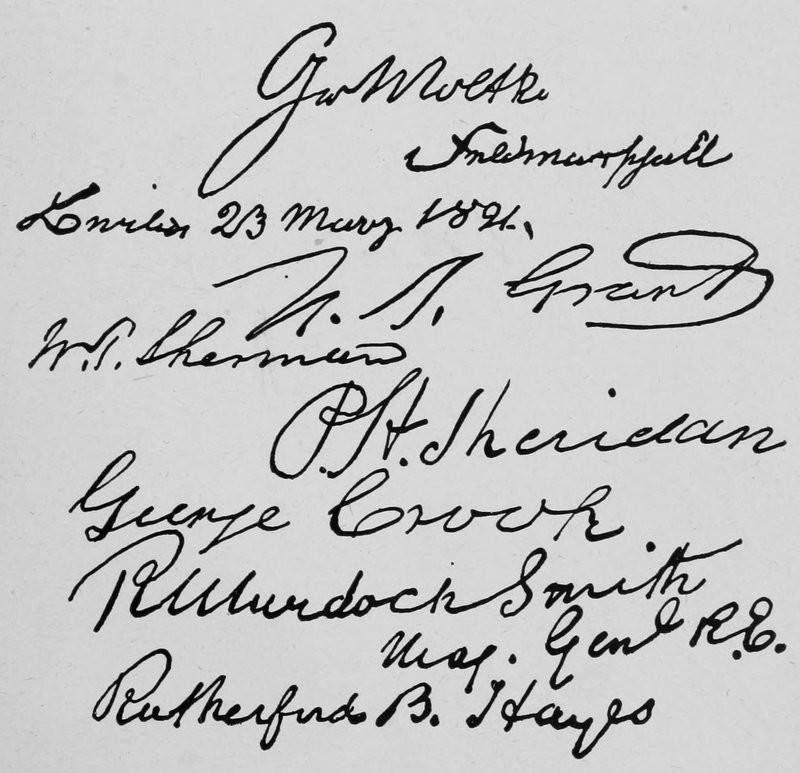 Gr Moltke
Feldmarschall
Berlin 23 März 1891.
U. S. Grant
W. T. Sherman
P. H. Sheridan
George Crook
R Murdoch Smith
Maj. Genl R.E.
Rutherford B. Hayes